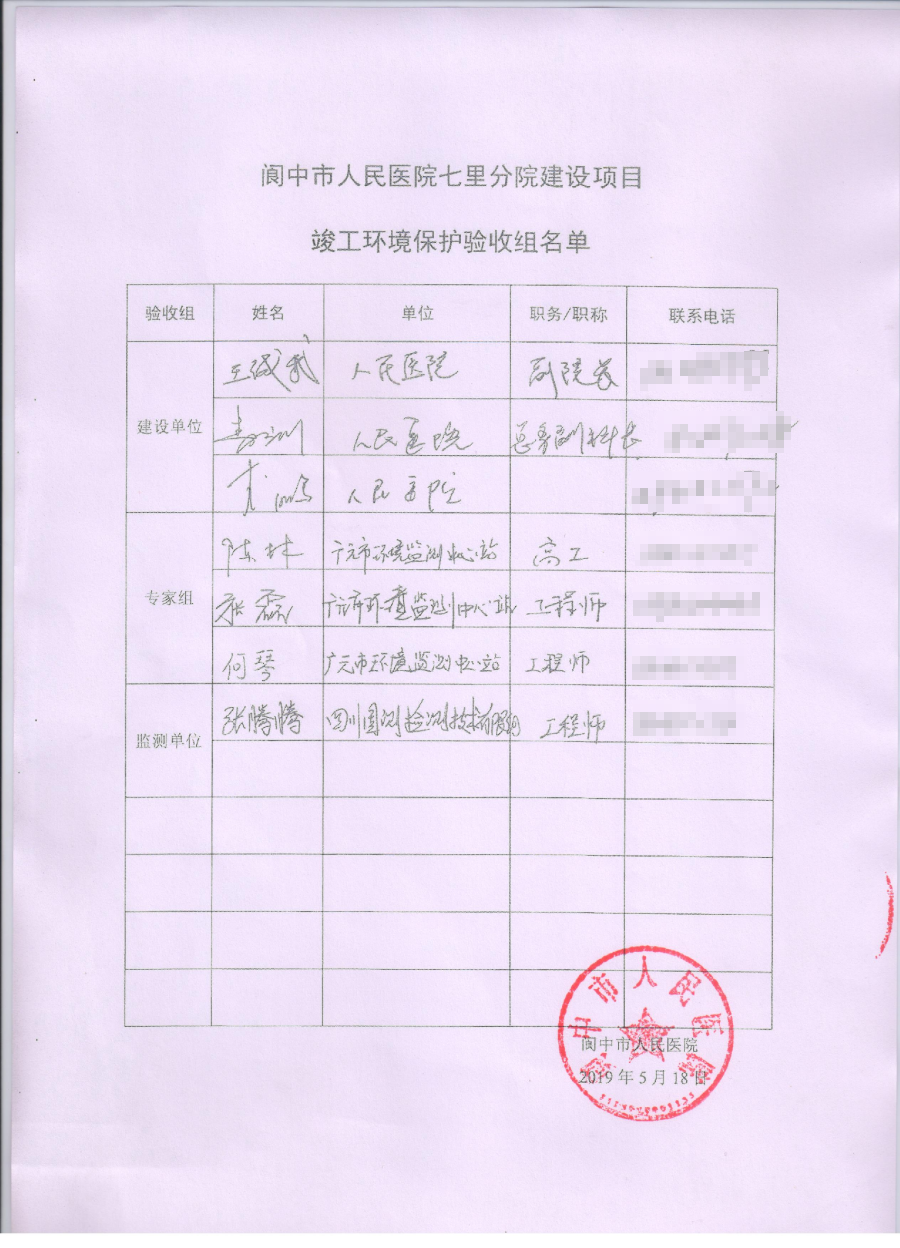 阆中市人民医院七里分院建设项目
竣工环境保护验收组名单
验收组 姓名 单位 职务/职称 联系电话
建设单位
人民医院 副院长
人民医院 总务副科长
人民医院
专家组
陈林 广元市环境监测中心站 高工
张磊 广元市环境监测中心站 工程师
何琴 广元市环境监测中心站 工程师
监测单位
张腾腾 四川国测检测技术有限公司 工程师
阆中市人民医院
阆中市人民医院
2019年5月18日